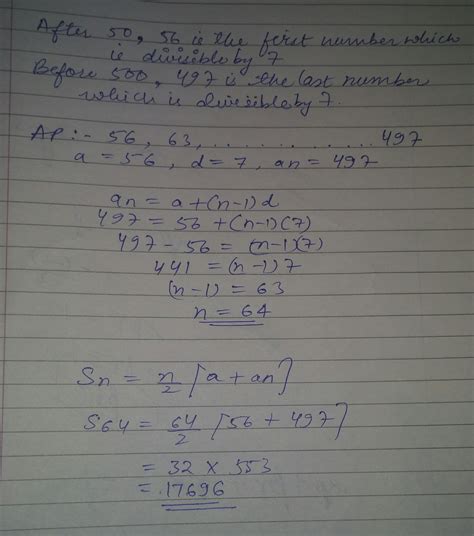 After 50, 56 is the first number which
is divisible by 7
Before 500, 497 is the last number
which is divisible by 7.
AP :- 56, 63, ............. 497
a = 56, d = 7, an = 497
an = a + (n-1)d
497 = 56 + (n-1)(7)
497 - 56 = (n-1)(7)
441 = (n-1)7
(n-1) = 63
n = 64
Sn = n/2 [a + an]
S64 = 64/2 [56 + 497]
= 32 × 553
= 17696